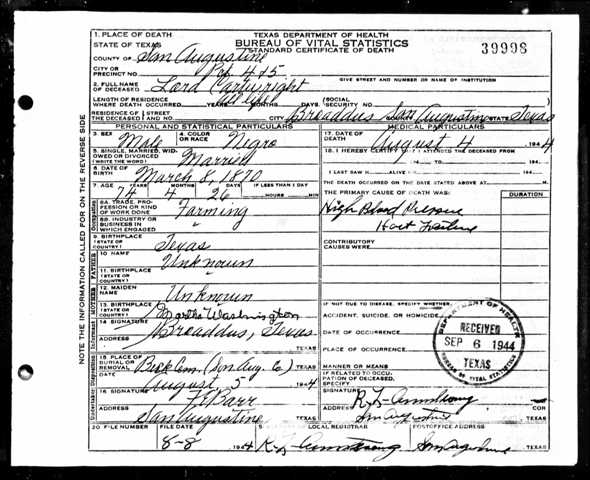 TEXAS DEPARTMENT OF HEALTH
BUREAU OF VITAL STATISTICS
STANDARD CERTIFICATE OF DEATH
39998
1. PLACE OF DEATH
STATE OF TEXAS
COUNTY OF San Augustine
CITY OR PRECINCT NO. 4 & 5
GIVE STREET AND NUMBER OR NAME OF INSTITUTION
2. FULL NAME OF DECEASED Lord Cartwright
LENGTH OF RESIDENCE WHERE DEATH OCCURRED YEARS MONTHS DAYS (SOCIAL SECURITY NO.
RESIDENCE OF THE DECEASED STREET AND NO. CITY Broaddus San Augustine STATE Texas
PERSONAL AND STATISTICAL PARTICULARS
3. SEX Male 4. COLOR OR RACE Negro
5. SINGLE, MARRIED, WIDOWED OR DIVORCED (WRITE THE WORD) Married
6. DATE OF BIRTH March 8, 1870
7. AGE YEARS MONTHS DAYS IF LESS THAN 1 DAY
74 26 HOURS MIN
8A. TRADE, PROFESSION OR KIND OF WORK DONE Farming
8B. INDUSTRY OR BUSINESS IN WHICH ENGAGED
9. BIRTHPLACE (STATE OR COUNTRY) Texas
10. NAME Unknown
11. BIRTHPLACE (STATE OR COUNTRY)
12. MAIDEN NAME Unknown
13. BIRTHPLACE (STATE OR COUNTRY)
14. SIGNATURE Martha Washington
ADDRESS Broaddus, Texas TEXAS
15. PLACE OF BURIAL OR REMOVAL Cem. (San Aug. Co)
DATE August 5 1944
16. SIGNATURE Barr
ADDRESS San Augustine TEXAS
MEDICAL PARTICULARS
17. DATE OF DEATH August 4 1944
18. I HEREBY CERTIFY THAT I ATTENDED THE DECEASED FROM
19 TO 19
I LAST SAW H ALIVE ON 19
THE DEATH OCCURRED ON THE DATE STATED ABOVE AT M.
THE PRIMARY CAUSE OF DEATH WAS: DURATION
High Blood Pressure
Heart Failure
CONTRIBUTORY CAUSES WERE
IF NOT DUE TO DISEASE, SPECIFY WHETHER
ACCIDENT, SUICIDE, OR HOMICIDE
DATE OF OCCURRENCE
PLACE OF OCCURRENCE
MANNER OR MEANS
IF RELATED TO OCCUPATION OF DECEASED, SPECIFY
SIGNATURE Armstrong
ADDRESS San Augustine TEXAS
DEPARTMENT OF HEALTH
RECEIVED
SEP 6 1944
TEXAS
BUREAU OF VITAL STATISTICS
20. FILE NUMBER FILE DATE LOCAL REGISTRAR POSTOFFICE ADDRESS
8-8 1944 Armstrong San Augustine TEXAS
NOTE ALL INFORMATION CALLED FOR ON THE REVERSE SIDE
Occupation
FATHER
MOTHER
Informant